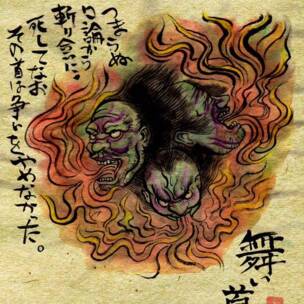 つまらぬ
口論から
斬り合いに
死してなお
その首は争いを
やめなかった。
舞い首